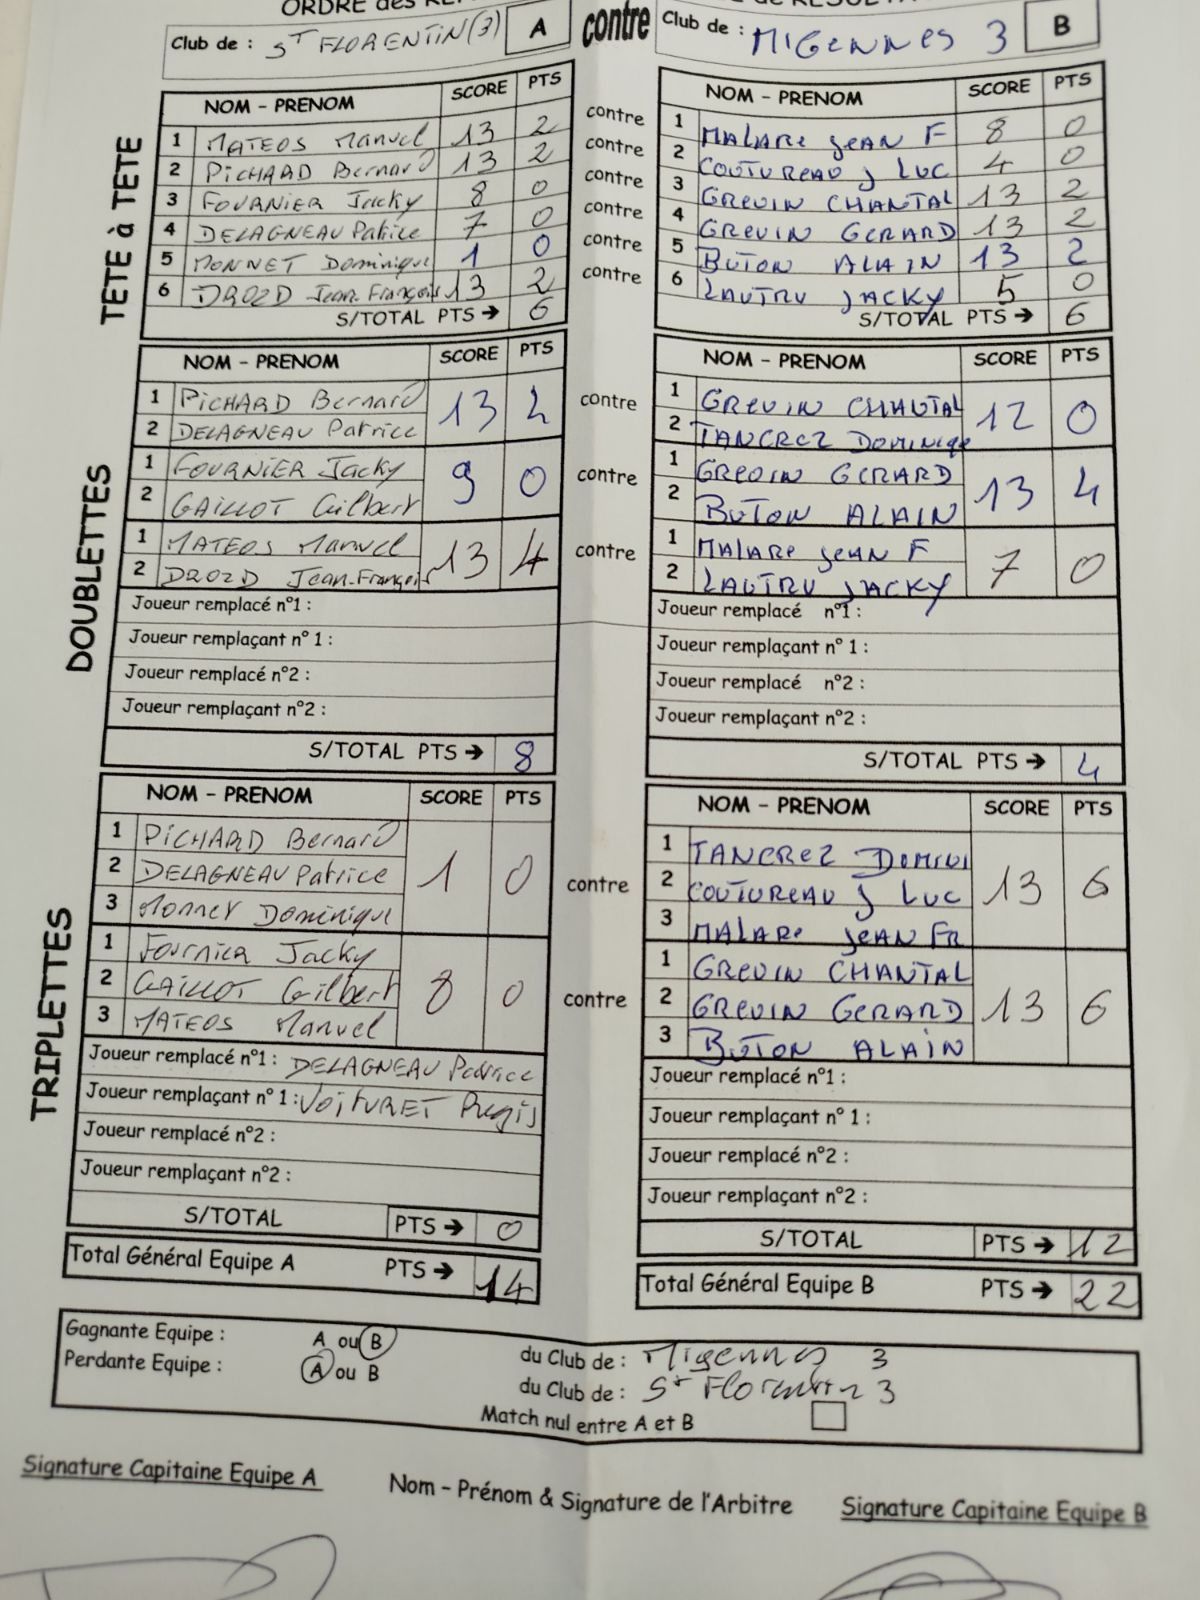 ORDRE des
contre
Club de : ST FLORENTIN (3) A
Club de : MIGENNES 3 B
TETE à TETE
NOM - PRENOM SCORE PTS
1 MATEOS Manuel 13 2
2 PICHARD Bernard 13 2
3 FOURNIER Jacky 8 0
4 DELAGNEAU Patrice 7 0
5 MONNET Dominique 1 0
6 DROZD Jean-François 13 2
S/TOTAL PTS → 6
contre
contre
contre
contre
contre
contre
NOM - PRENOM SCORE PTS
1 MALARE JEAN F 8 0
2 COUTUREAU J LUC 4 0
3 GREVIN CHANTAL 13 2
4 GREVIN GERARD 13 2
5 BUTON ALAIN 13 2
6 LAUTRU JACKY 5 0
S/TOTAL PTS → 6
DOUBLETTES
NOM - PRENOM SCORE PTS
1 PICHARD Bernard 13 4
2 DELAGNEAU Patrice
1 FOURNIER Jacky 9 0
2 GAILLOT Gilbert
1 MATEOS Manuel 13 4
2 DROZD Jean-François
Joueur remplacé n°1 :
Joueur remplaçant n° 1 :
Joueur remplacé n°2 :
Joueur remplaçant n°2 :
S/TOTAL PTS → 8
contre
contre
contre
NOM - PRENOM SCORE PTS
1 GREVIN CHANTAL 12 0
2 TANCREZ Dominique
1 GREVIN GERARD 13 4
2 BUTON ALAIN
1 MALARE JEAN F 7 0
2 LAUTRU JACKY
Joueur remplacé n°1 :
Joueur remplaçant n° 1 :
Joueur remplacé n°2 :
Joueur remplaçant n°2 :
S/TOTAL PTS → 4
TRIPLETTES
NOM - PRENOM SCORE PTS
1 PICHARD Bernard 1 0
2 DELAGNEAU Patrice
3 Monnet Dominique
1 FOURNIER Jacky 8 0
2 GAILLOT Gilbert
3 MATEOS Manuel
Joueur remplacé n°1 : DELAGNEAU Patrice
Joueur remplaçant n° 1 : VOITURET Régis
Joueur remplacé n°2 :
Joueur remplaçant n°2 :
S/TOTAL PTS → 0
Total Général Equipe A PTS → 14
contre
contre
NOM - PRENOM SCORE PTS
1 TANCREZ DOMINI 13 6
2 COUTUREAU J LUC
3 MALARE JEAN FR
1 GREVIN CHANTAL 13 6
2 GREVIN GERARD
3 BUTON ALAIN
Joueur remplacé n°1 :
Joueur remplaçant n° 1 :
Joueur remplacé n°2 :
Joueur remplaçant n°2 :
S/TOTAL PTS → 12
Total Général Equipe B PTS → 22
Gagnante Equipe : A ou B du Club de : Migennes 3
Perdante Equipe : A ou B du Club de : St Florentin 3
Match nul entre A et B
Signature Capitaine Equipe A
Nom - Prénom & Signature de l'Arbitre
Signature Capitaine Equipe B